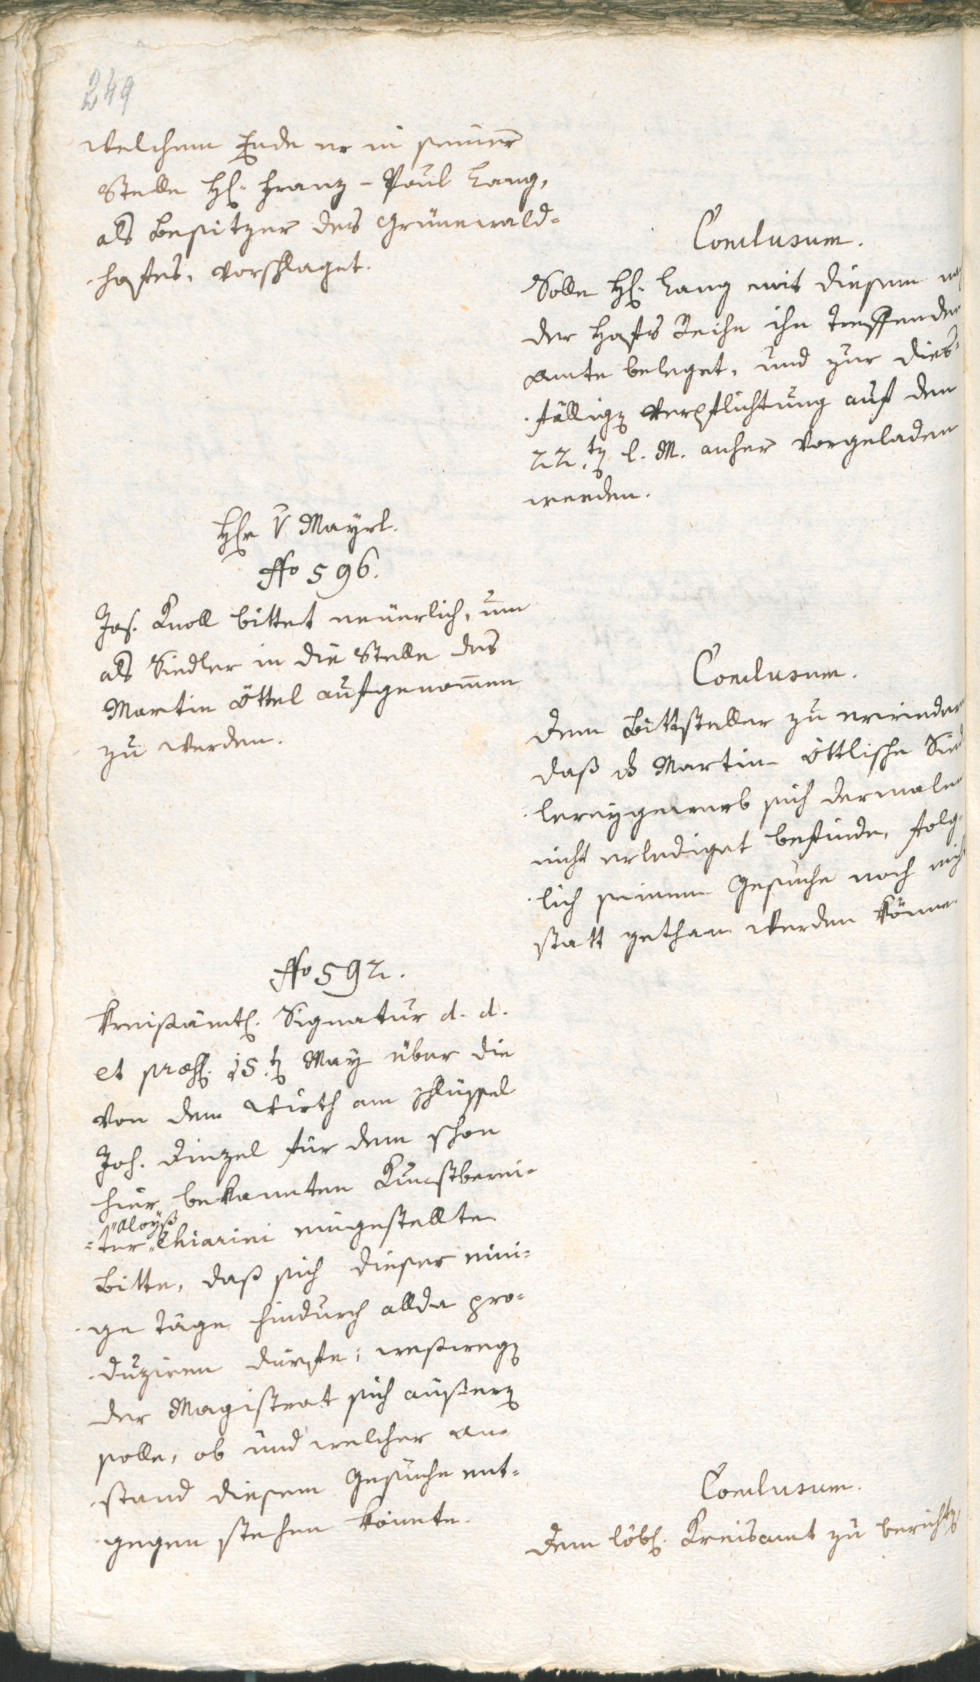 249
welchem Ende er in seiner
Stelle H. Franz-Paul Lang,
als Besitzer des Grünewald-
hofes, vorschlaget.
Conclusum.
Solle H. Lang mit diesem
der Hofs Reihe ihn treffenden
Amte beleget, und zur dies-
fällig Verpflichtung auf den
22.t l. M. anher vorgeladen
werden.
Hr v Mayrl.
No 596.
Jos. Knoll bittet neuerlich, um
als Siedler in die Stelle des
Martin Öttel aufgenommen
zu werden.
Conclusum.
dem Bittsteller zu erwiedern
daß Martin Öttlische Sied
lereygewerb sich dermalen
nicht erlediget befinde, folg-
lich seinem Gesuche noch nicht
statt gethan werden könne.
No 592.
Kreisämtl. Signatur d. d.
et præs. 15.t May über die
von dem Wirth am Schlüssel
Joh. Dinzel für dem schon
hier bekannten Kunstberei-
Aloys
=ter Chiarini eingestellte
Bitte, daß sich dieser eini-
ge Täge hindurch allda pro-
duziren dürfte; weßweg
der Magistrat sich äußern
solle, ob und welcher An-
stand diesem Gesuche ent-
gegen stehen könnte.
Conclusum.
dem löbl. Kreisamt zu bericht